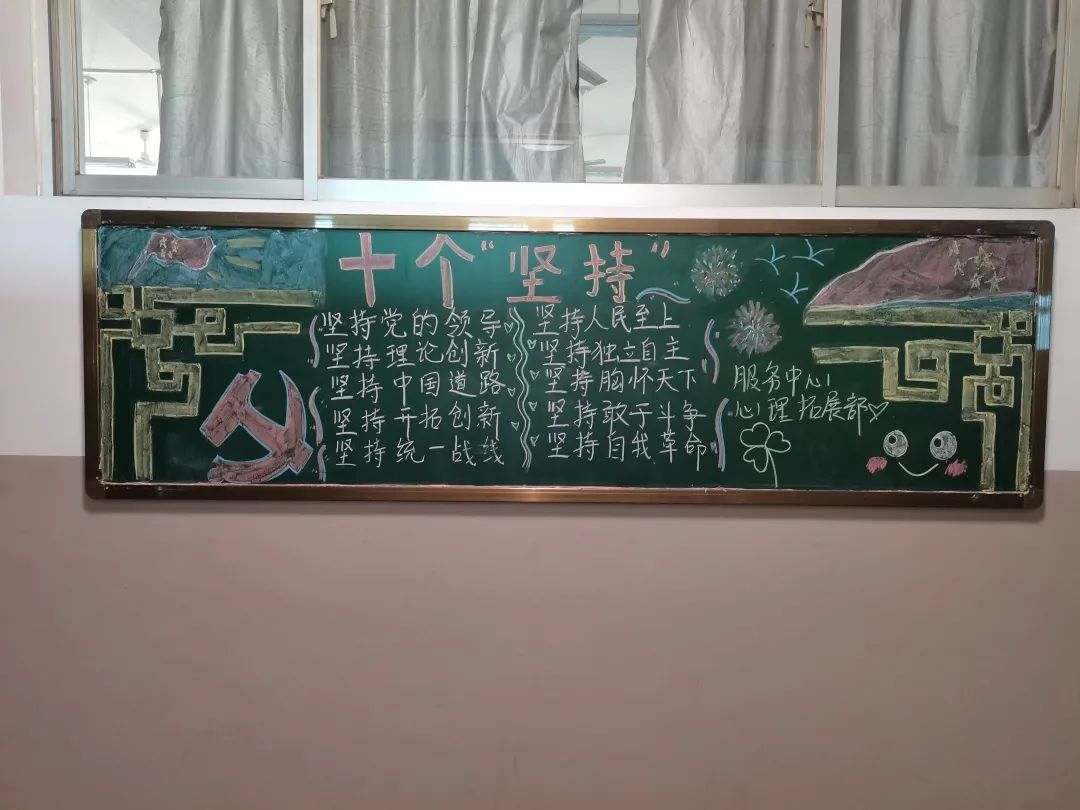 十个“坚持”
坚持党的领导
坚持理论创新
坚持中国道路
坚持开拓创新
坚持统一战线
坚持人民至上
坚持独立自主
坚持胸怀天下
坚持敢于斗争
坚持自我革命
服务中心
心理拓展部